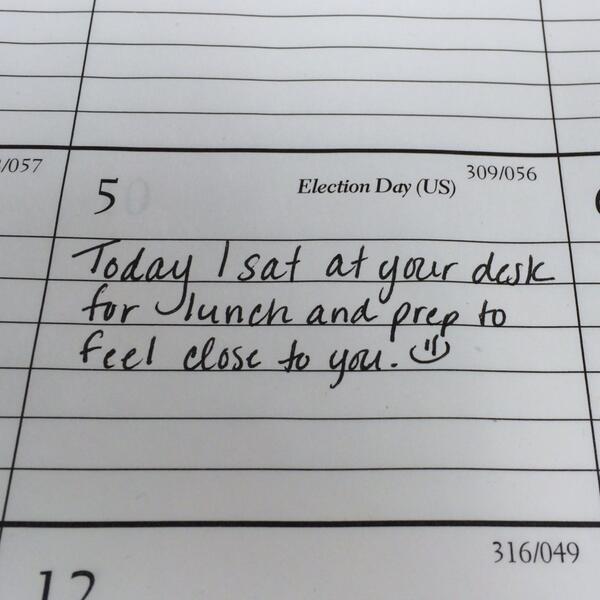 /057
5
Election Day (US)
309/056
Today I sat at your desk
for lunch and prep to
feel close to you.
316/049
12